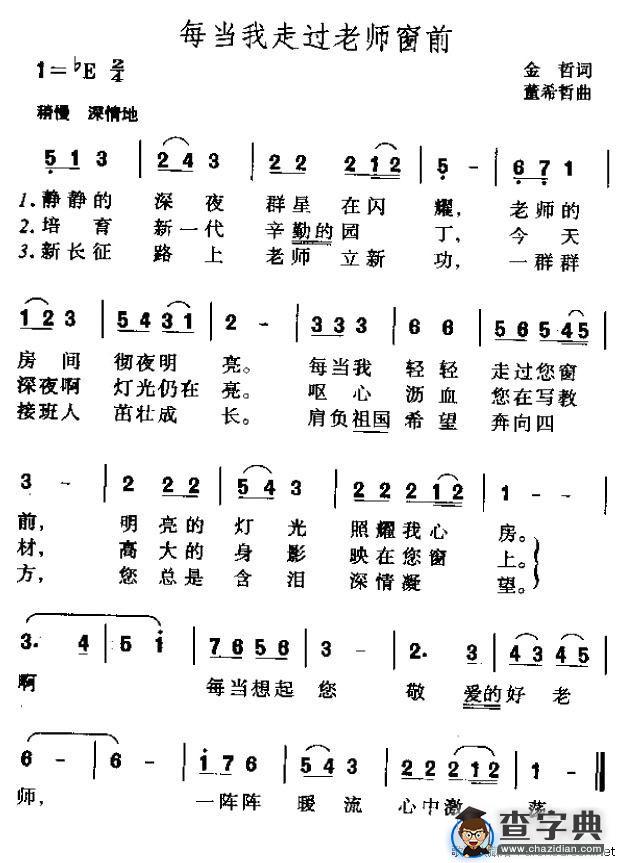 每当我走过老师窗前
1=♭E 2/4
金 哲词
董希哲曲
稍慢 深情地
5 1 3 | 2 4 3 | 2 2 2 2 1 2 | 5 - | 6 7 1 |
1.静静的 深夜 群星在闪 耀, 老师的
2.培育 新一代 辛勤的园 丁, 今天
3.新长征 路上 老师立新 功, 一群群
1 2 3 | 5 4 3 1 | 2 - | 3 3 3 6 6 | 5 6 5 4 5 |
房间 彻夜明 亮。 每当我 轻轻 走过您窗
深夜啊 灯光仍在 亮。 呕心 沥血 您在写教
接班人 茁壮成 长。 肩负祖国 希望 奔向四
3 - | 2 2 2 | 5 4 3 | 2 2 2 2 1 2 | 1 - |
前, 明亮的 灯光 照耀我心 房。
材, 高大的 身影 映在您窗 上。
方, 您总是 含泪 深情凝 望。
3. 4 | 5 1 | 7 6 5 6 | 3 - | 2. 3 | 4 3 4 5 |
啊 每当想起 您 敬 爱的好老
6 - | 6 - | 1 7 6 | 5 4 3 | 2 2 2 1 2 | 1 - ‖
师, 一阵阵 暖流 心中激 荡
查字典
www.chazidian.com